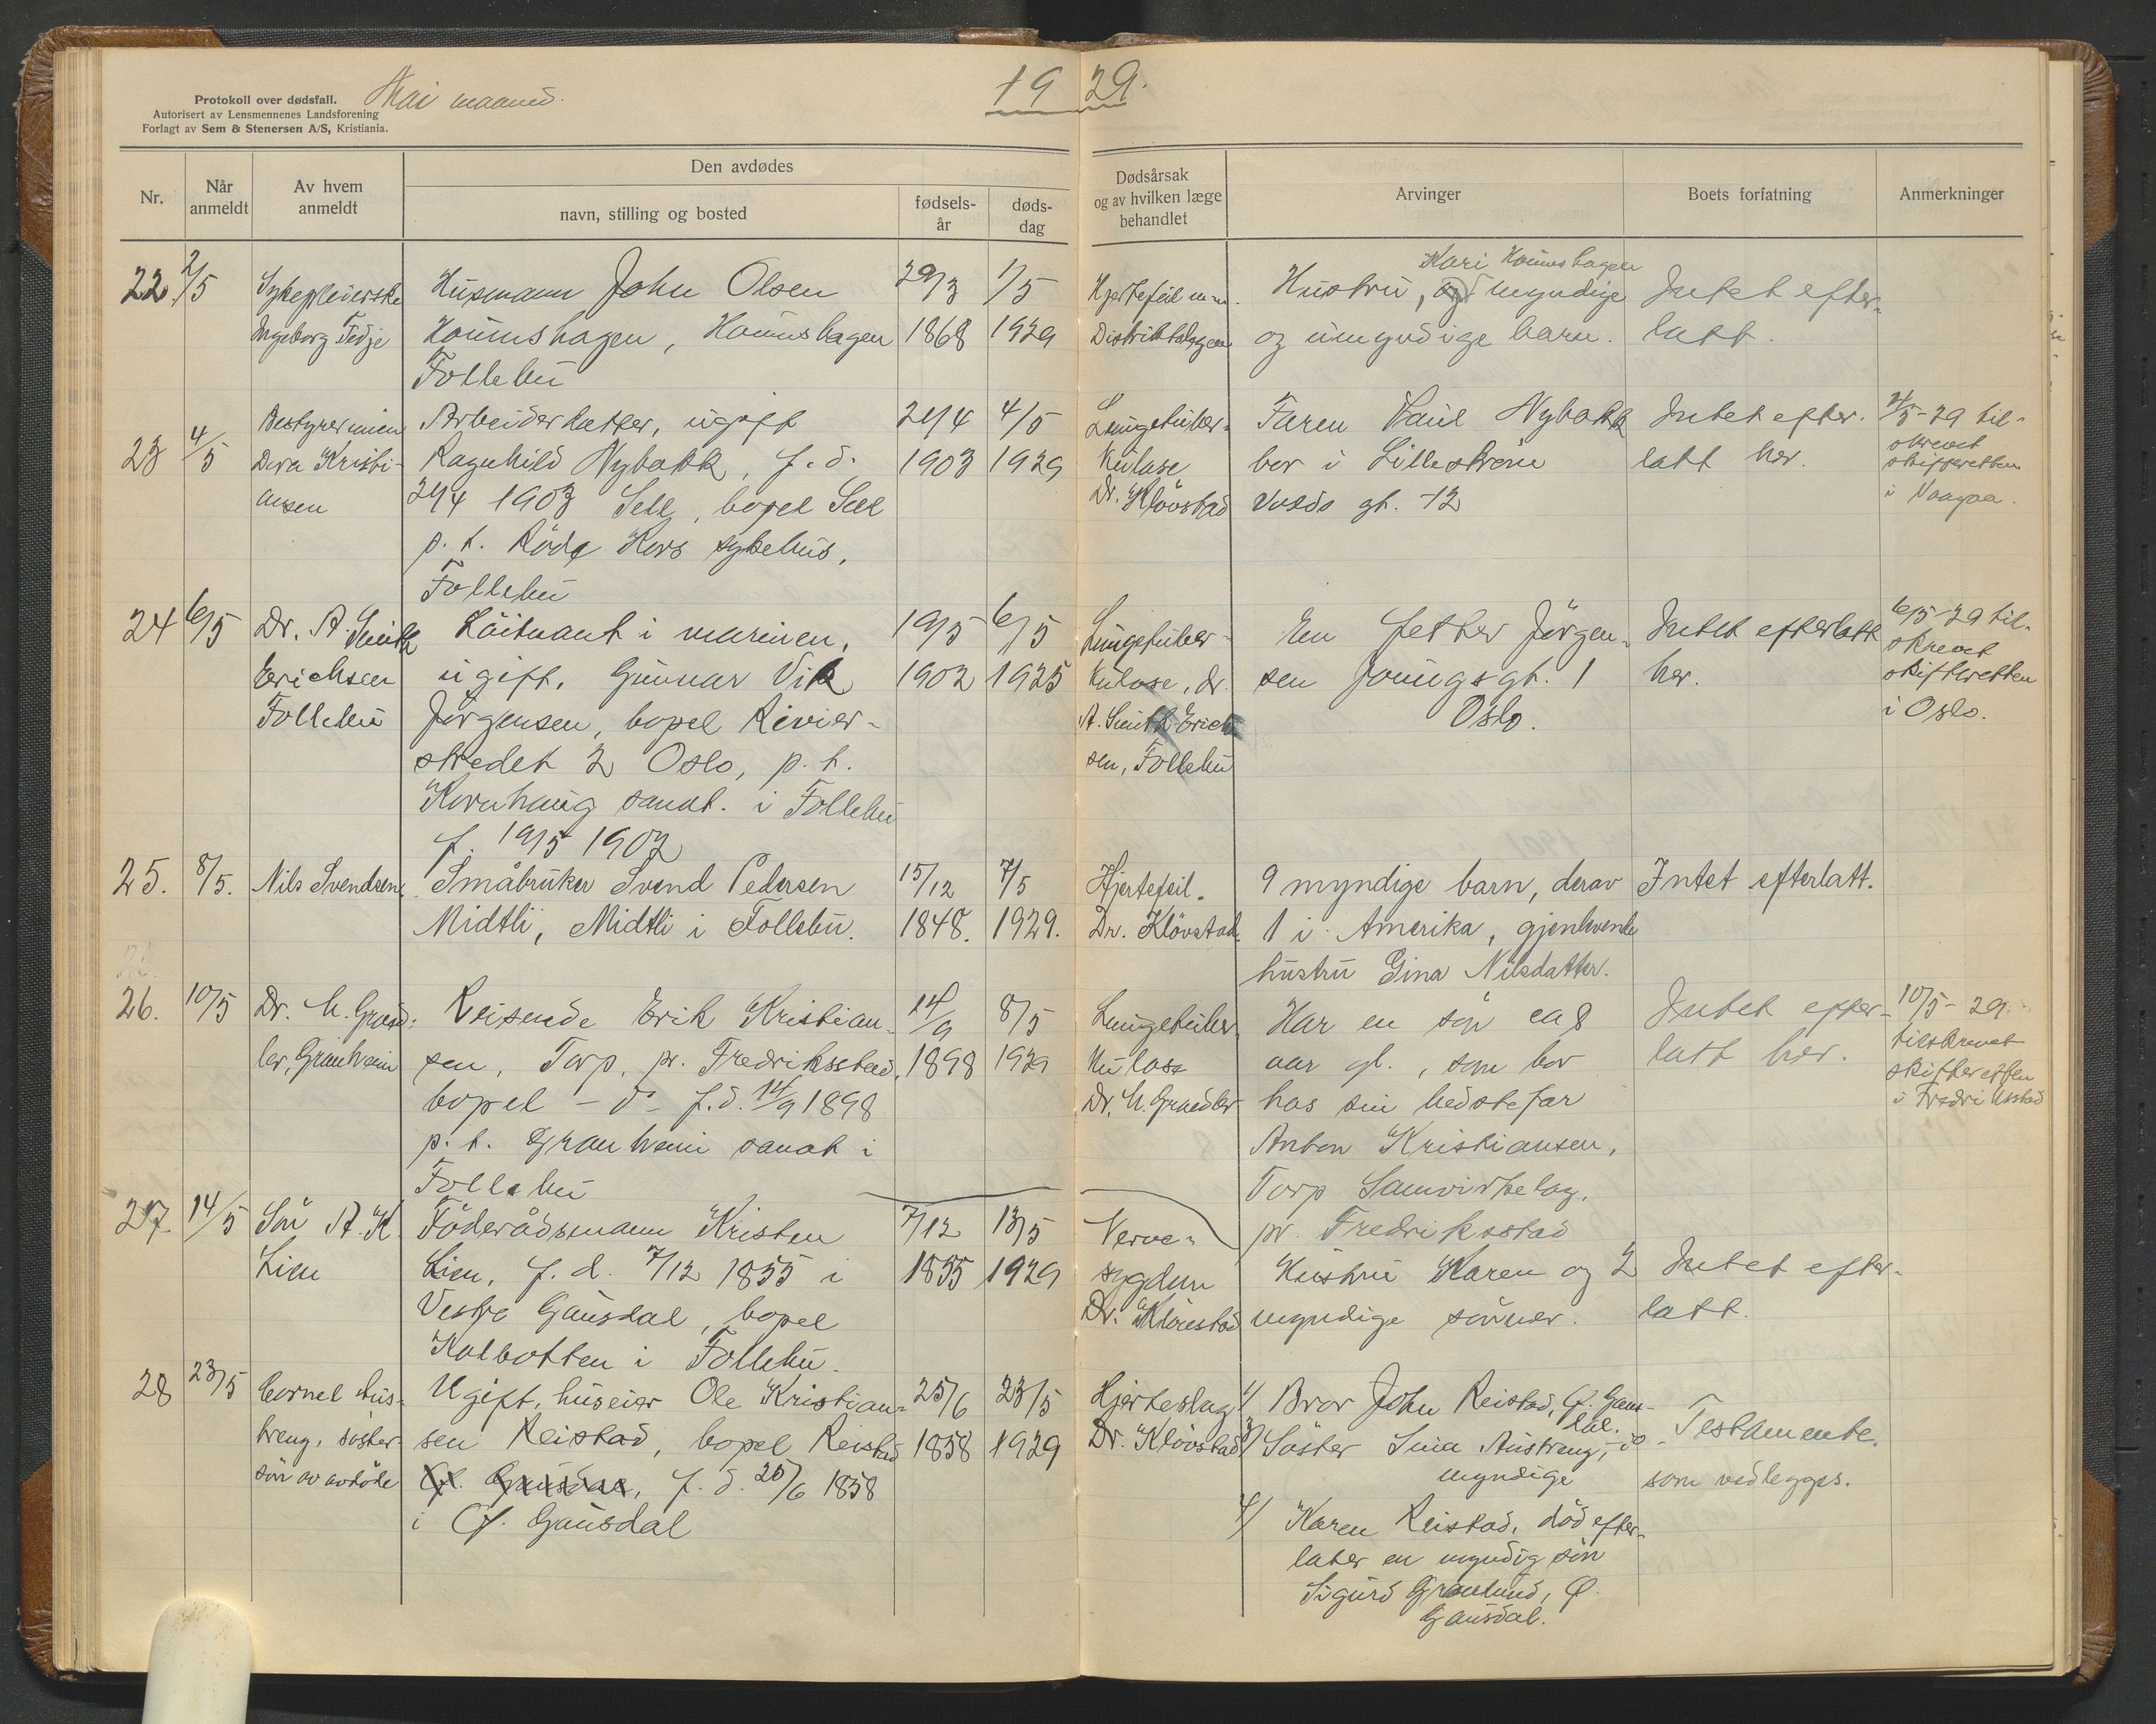 Mai maaned.
19 29.
Protokoll over dødsfall.
Autorisert av Lensmennenes Landsforening
Forlagt av Sem & Stenersen A/S, Kristiania.
Nr.
Når anmeldt
Av hvem anmeldt
Den avdødes
navn, stilling og bosted
fødsels-år
døds-dag
Dødsårsak og av hvilken læge behandlet
Arvinger
Boets forfatning
Anmerkninger
22. 2/5
Sykepleierske
Ingeborg Tedje
Husmann John Olsen
Houmshagen, Houmshagen
Follebu
29/3
1868
1/5
1929
Hjertefeil m.m.
Distriktslægen
Kari Houmshagen
Hustru, og myndige
og umyndige barn.
Intet efter-
latt.
23 4/5
Bestyrerinne
Dora Kristi-
ansen
Arbeiderdatter, ugift
Ragnhild Nybakk, f.d.
24/4 1903 Sell, bopel Sell
p.t. Röde Kors sykehus,
Follebu
24/4
1903
4/5
1929
Lungetuber-
kulose
Dr. Klövstad
Faren Paul Nybakk
bor i Lilleström
Volds gt. 12
Intet efter-
latt her.
4/5-29 til-
skrevet
skifteretten
i Vaagaa.
24 6/5
Dr. A. Smith
Erichsen
Follebu
Löitnant i marinen,
ugift, Gunnar Vik
Jörgensen, bopel Revier-
stredet 2 Oslo, p.t.
Kornhaug sanat. i Follebu
f. 19/5 1902
19/5
1902
6/5
1925
Lungetuber-
kulose, dr.
A. Smith Erich-
sen, Follebu
En fetter Jörgen-
sen Youngsgt. 1
Oslo.
Intet efterlatt
her.
6/5-29 til-
skrevet
skifteretten
i Oslo.
25. 8/5.
Nils Svendsen
Småbruker Svend Pedersen
Midtli, Midtli i Follebu.
15/12
1848.
7/5
1929.
Hjertefeil.
Dr. Klövstad.
9 myndige barn, derav
1 i Amerika, gjenlevende
hustru Gina Nilsdatter.
Intet efterlatt.
26. 10/5
Dr. M. Græd-
ler, Granheim
Reisende Erik Kristian-
sen, Torp, pr. Fredriksstad,
bopel - do - f.d. 14/9 1898
p.t. Granheim sanat i
Follebu
14/9
1898
8/5
1929
Lungetuber-
kulose
Dr. M. Grædler
Har en sön ca 8
aar gl., som bor
hos sin bedstefar
Anton Kristiansen,
Torp Samvirkelag,
pr. Fredriksstad
Intet efter-
latt her.
10/5-29.
tilskrevet
skifteretten
i Fredriksstad
27. 14/5
Sön A. K.
Lien
Föderådsmann Kristen
Lien, f.d. 7/12 1855 i
Vestre Gausdal, bopel
Kolbotten i Follebu.
7/12
1855
13/5
1929
Nerve-
sygdom
Dr. Klövstad
Hustru Karen og 2
myndige sönner.
Intet efter-
latt.
28 23/5
Cornel Aus-
treng, söster-
sön av avdöde
Ugift, huseier Ole Kristian-
sen Reistad, bopel Reistad
Ø. Gausdal, f.d. 25/6 1858
i Ø. Gausdal
25/6
1858
23/5
1929
Hjerteslag
Dr. Klövstad
1/ Bror John Reistad, Ø. Gaus-
dal.
3/ Söster Sina Austreng, - do -
myndige
4/ Karen Reistad, död efter-
later en myndig sön
Sigurd Granlund, Ø.
Gausdal.
Testamente.
som vedlegges.